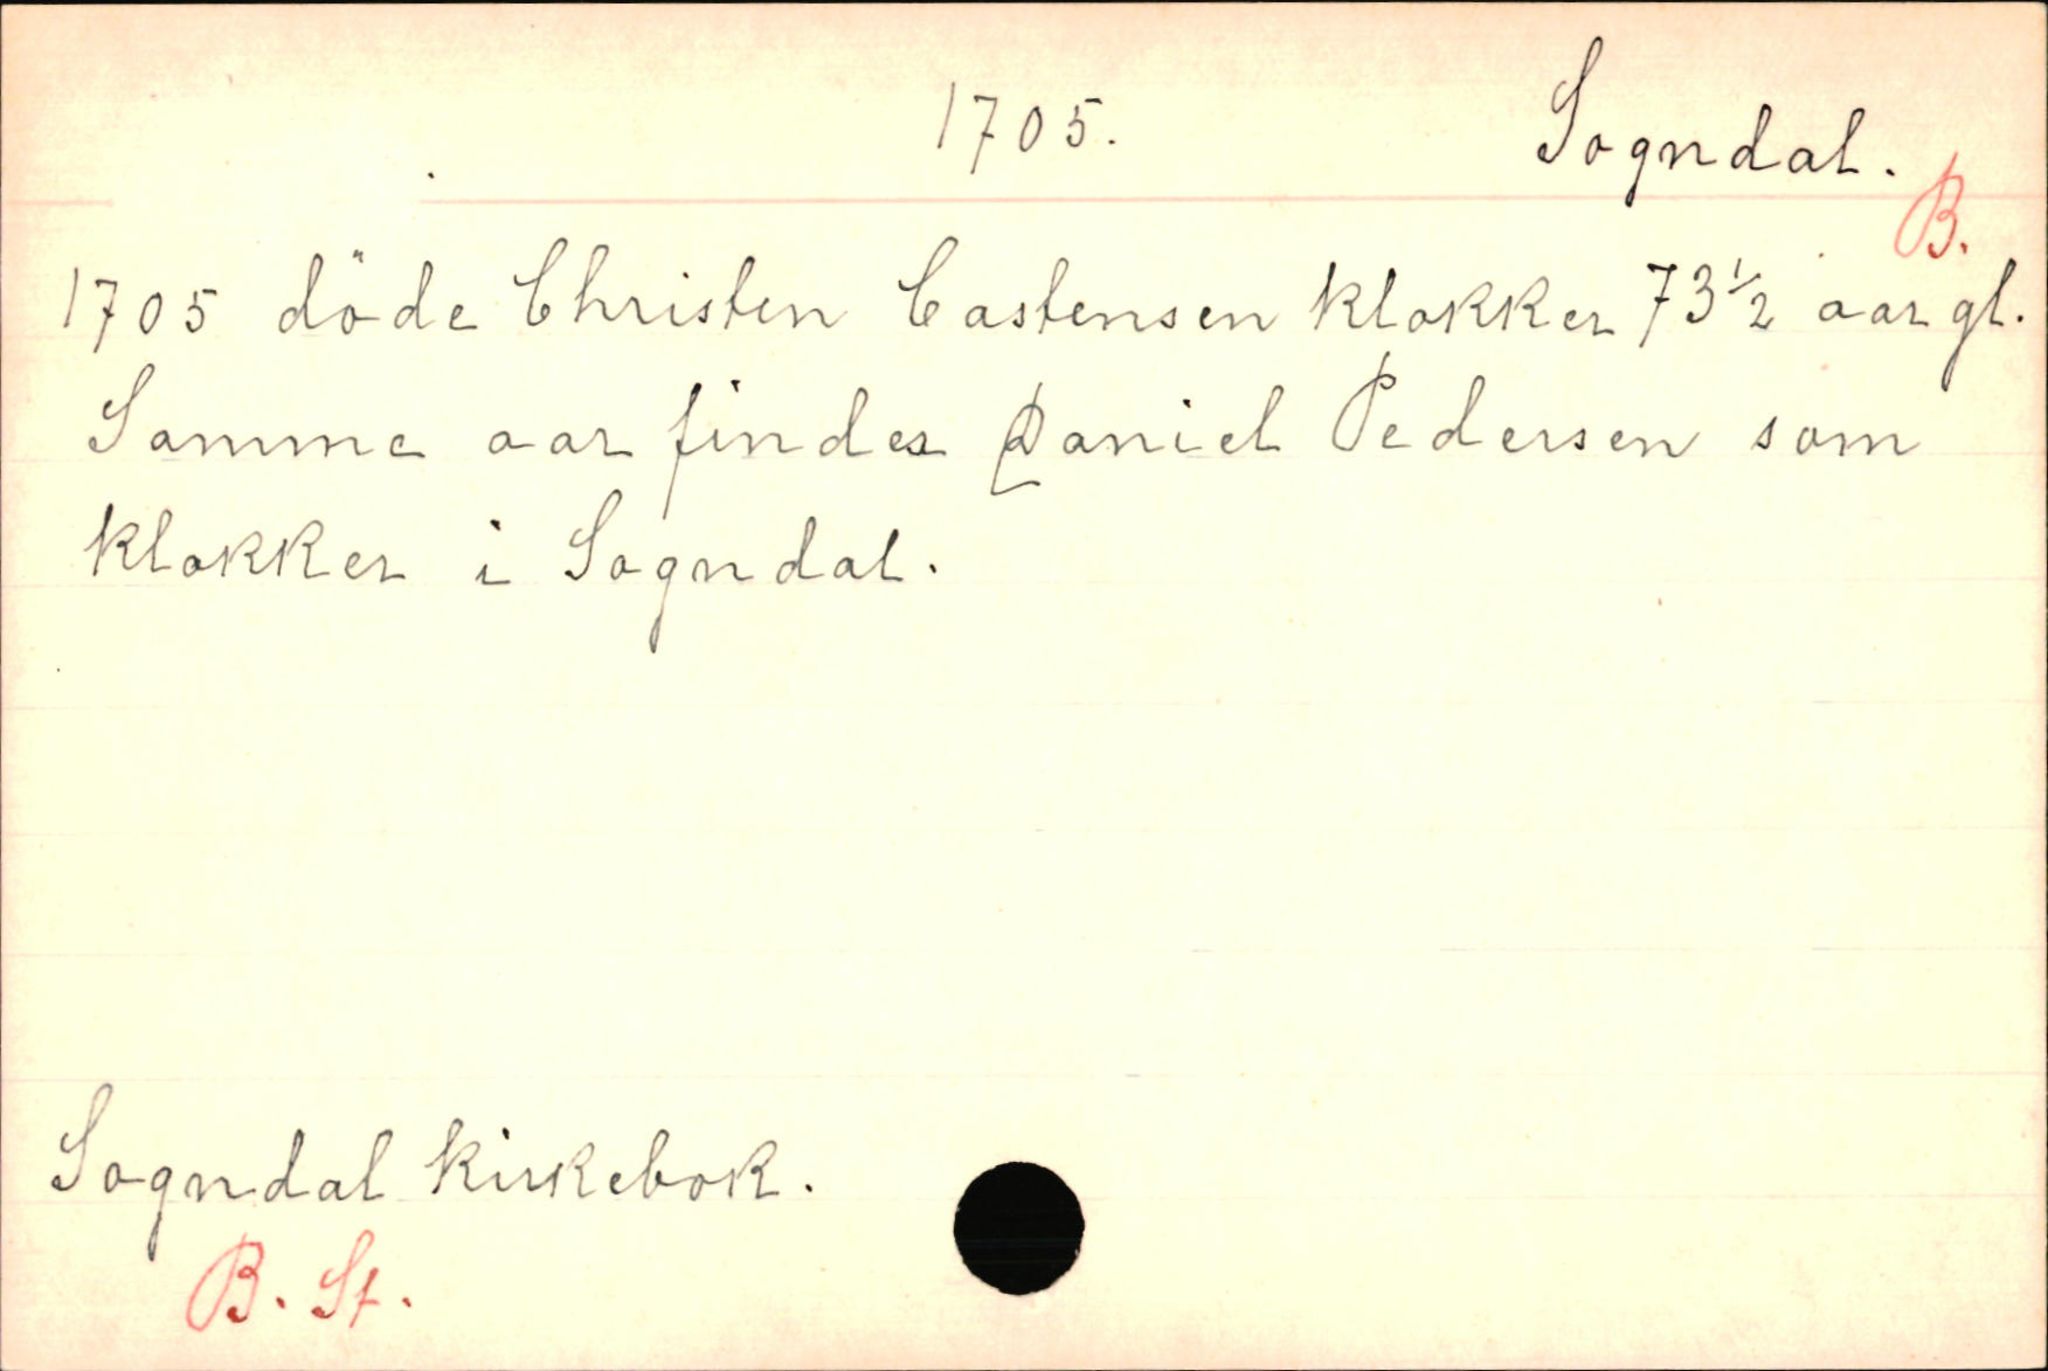 1705. Sogndal.
B.
1705 döde Christen Castensen klokker 73½ aar gl.
Samme aar findes Daniel Pedersen som
klokker i Sogndal.
Sogndal kirkebok.
B. St.